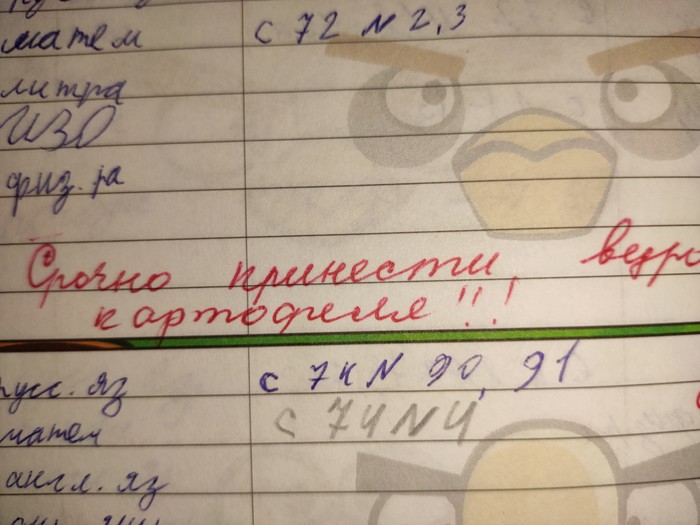 матем с 72 N 2,3
литра
ИЗО
физ-ра
Срочно принести, ведро
картофеля!!!
русс. яз с 74 N 90, 91
матем с 74 N 4
англ. яз